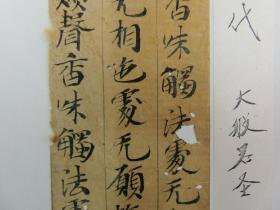 代
大般若圣
香味觸法處无
无相色處无願
聲香味觸法處